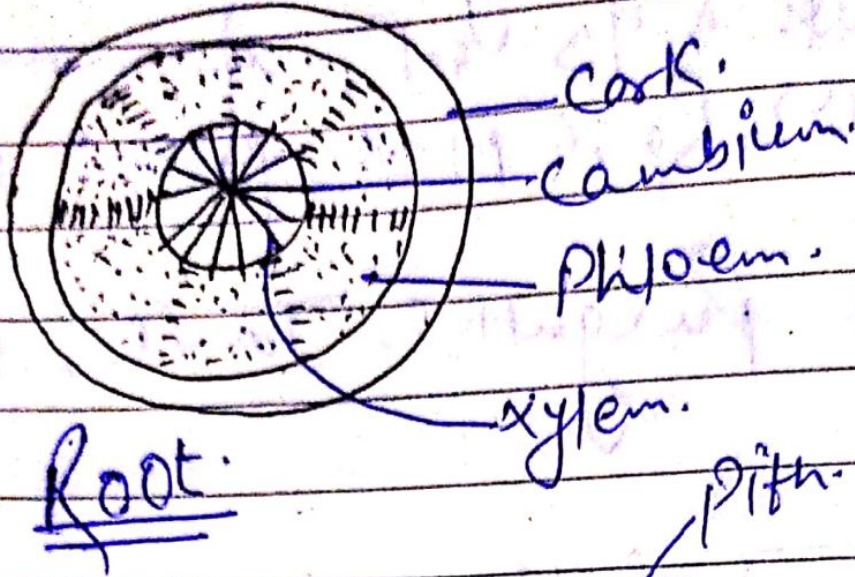 Cork.
Cambium.
Phloem.
xylem.
Root.
Pith.